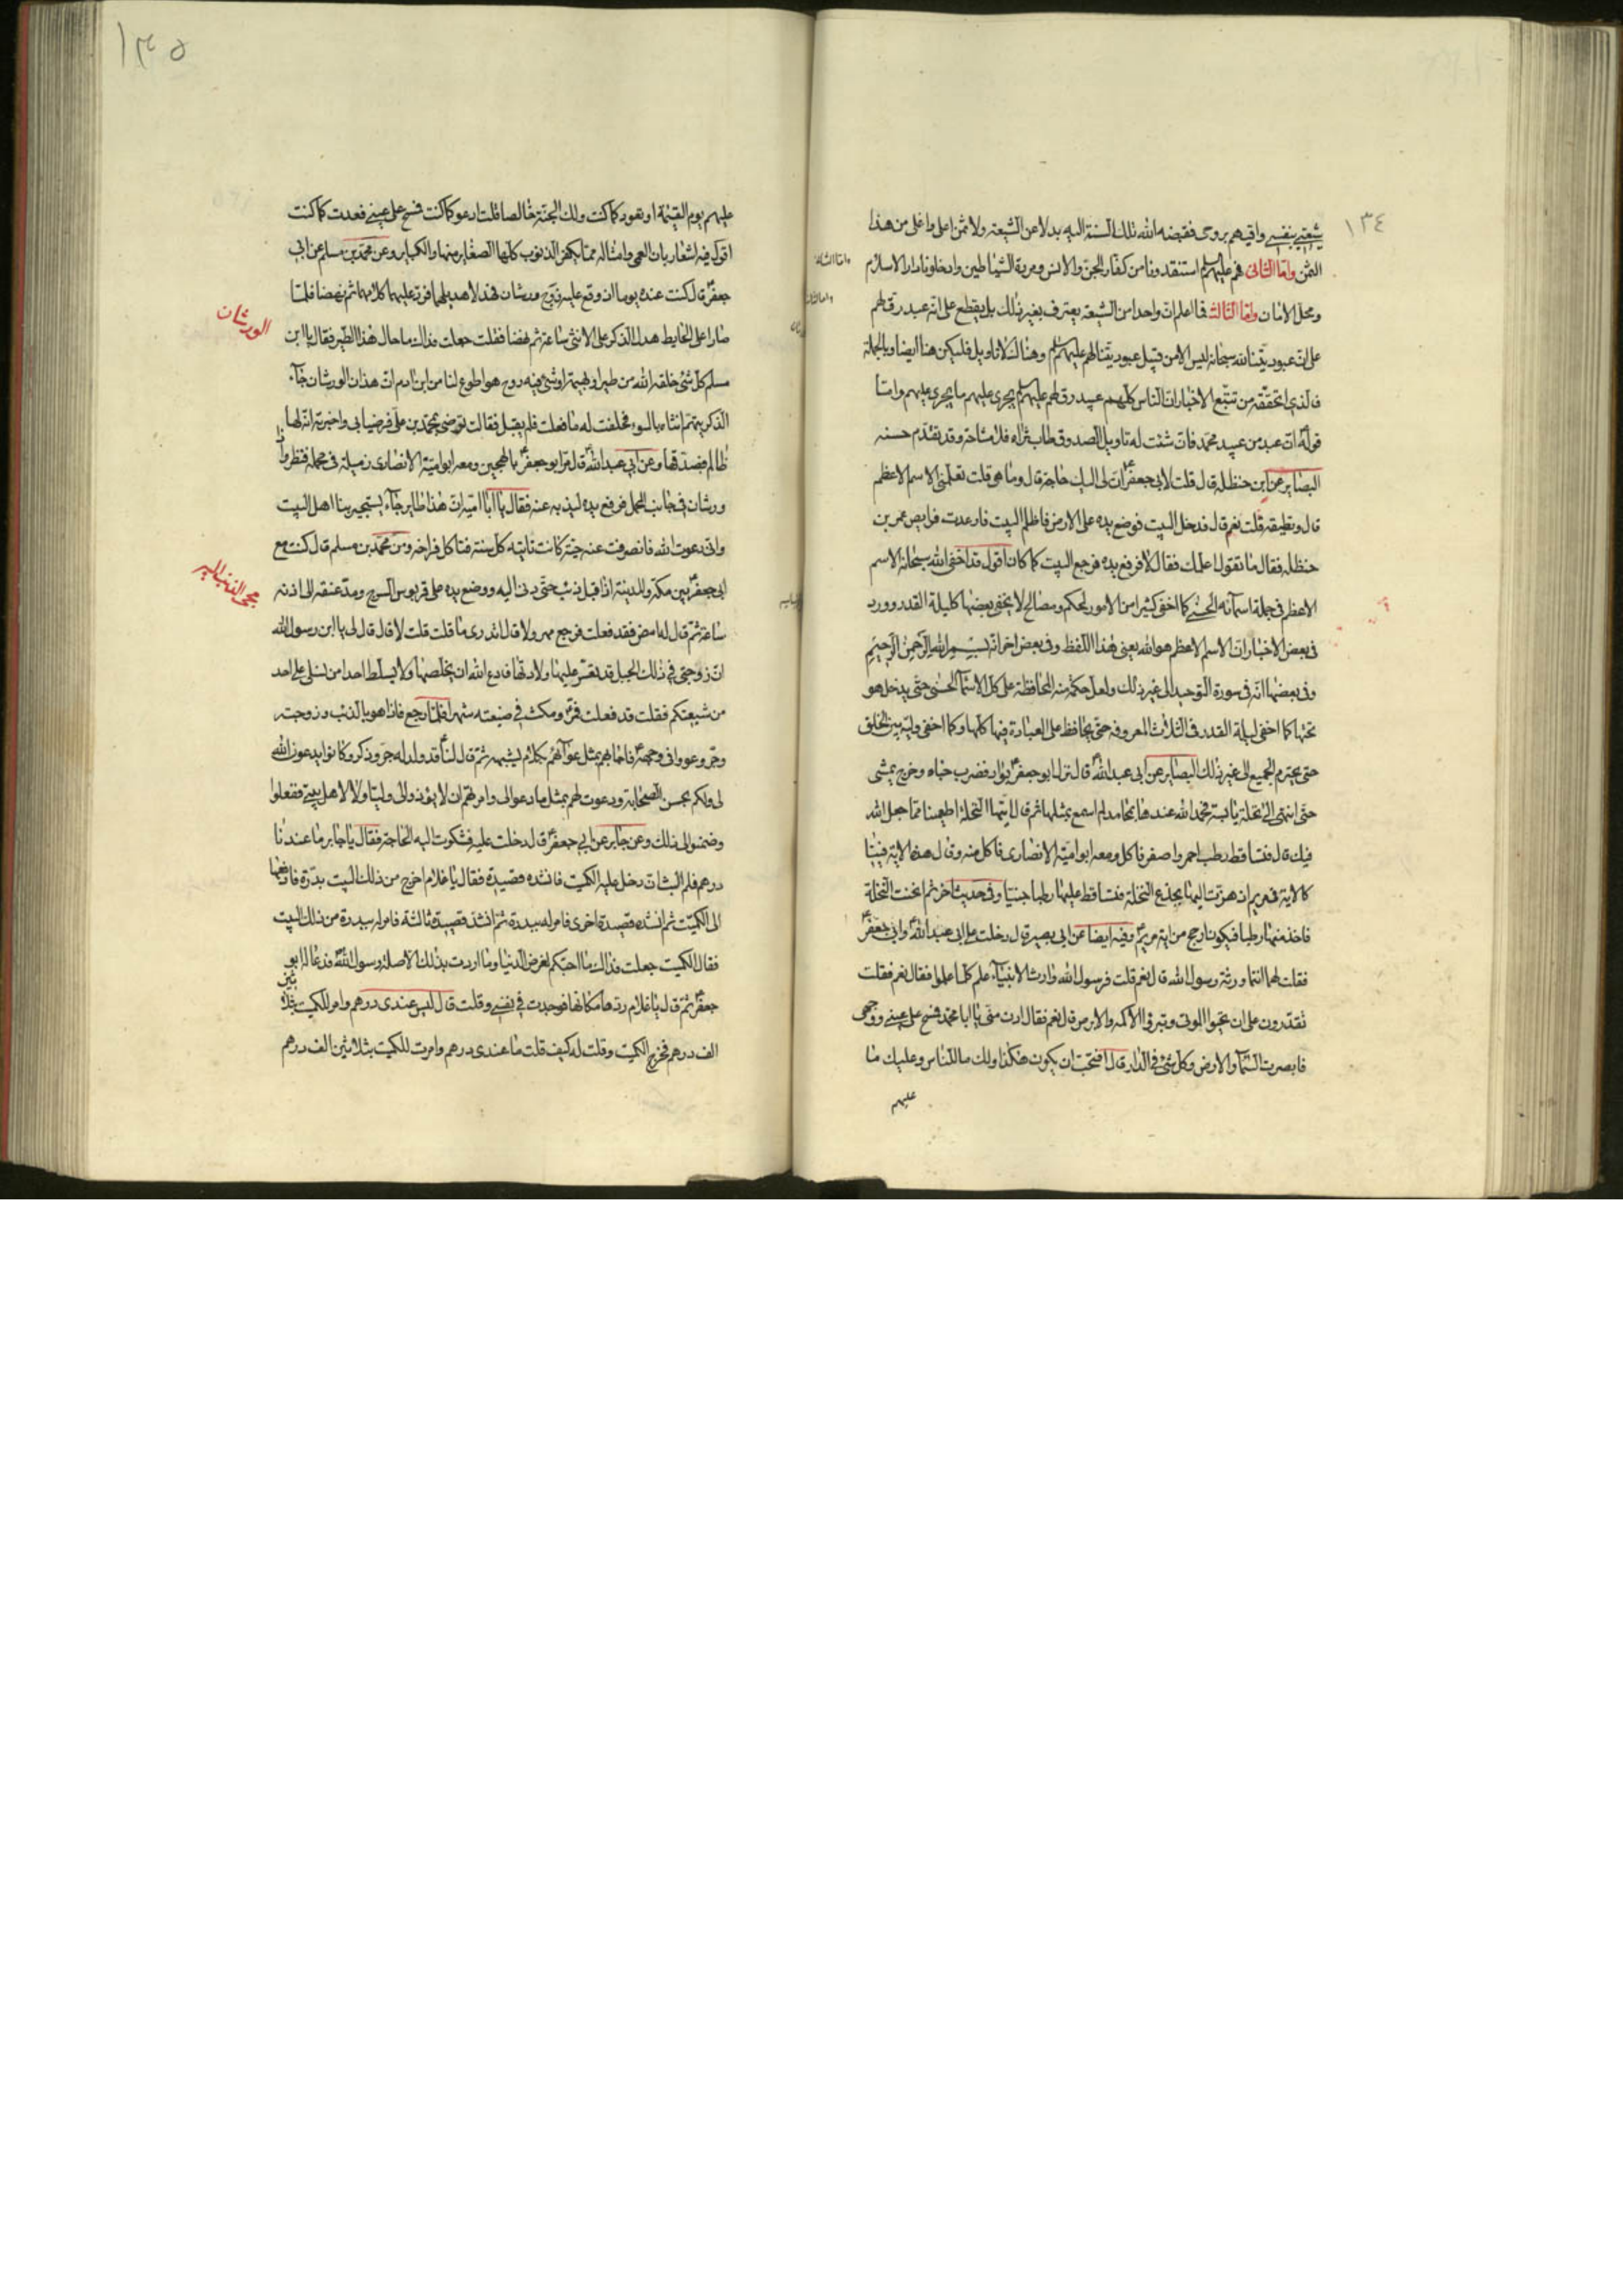 ١٣٤
شيعتي بنفسي واقيهم بروحى فقبضه الله تلك السنة اليه بدلا عن الشيعة ولا ثمن اعلى واغلى من هذا
الثمن واما الثانى فهم عليهم السلم استنقذونا من كفار الجن والانس ومردة الشياطين وادخلونا دار الاسلام
ومحل الامان واما الثالث فما اعلم ان واحدا من الشيعة يعترف بغير ذلك بل يقطع على انه عبد رق لهم
على ان عبوديتنا لله سبحانه ليس الا من قبيل عبوديتنا لهم عليهم السلم وهناك لا تاويل فليكن هنا ايضا وبالجملة
فالذى اتحققه من تتبع الاخبار ان الناس كلهم عبيد رق لهم عليهم السلم يجرى عليهم ما يجرى عليهم واما
قوله ان عبد من عبيد محمد فان شئت له تاويل الصدوق طاب ثراه فلا مشاحة وقد تقدم حسنه
البصاير عن ابن حنظله قال قلت لابى جعفر ان لى اليك حاجة قال وما هى قلت تعلمنى الاسم الاعظم
قال وتطيقه قلت نعم قال فدخل البيت فوضع يده على الارض فاظلم البيت فارعدت فرايص عمر بن
حنظله فقال ما تقول اعلمك فقال لا فرفع يده فرجع البيت كما كان اقول قد اخفى الله سبحانه الاسم
الاعظم فى جملة اسمائه الحسنى كما اخفى كثيرا من الامور لحكم ومصالح لا يخفى بعضها كليلة القدر وورد
فى بعض الاخبار ان الاسم الاعظم هو الله يعنى هذا اللفظ وفى بعض اخر انه بسم الله الرحمن الرحيم
وفى بعضها انه فى سورة التوحيد الى غير ذلك ولعل حكمته المحافظة على كل الاسماء الحسنى حتى يدخل هو
تحتها كما اخفى ليلة القدر فى الثلاث المعروفه حتى يحافظ على العبادة فيها كلها وكما اخفى وليه بين الخلق
حتى يحترم الجميع الى غير ذلك البصاير عن ابى عبد الله قال نزل ابو جعفر بواد فضرب خباه وخرج يمشى
حتى انتهى الى نخلة يابسة فحمد الله عندها بمحامد لم اسمع بمثلها ثم قال ايتها النخلة اطعمينا مما جعل الله
فيك قال فتساقط رطب احمر واصفر فاكل ومعه ابو امية الانصارى فاكل منه وقال هذه الاية فينا
كالاية فى مريم اذ هزت اليها بجذع النخلة فتساقط عليها رطبا جنيا وفى حديث اخر ثم انحنت النخلة
فاخذ منها رطبا فيكون ارجح من اية مريم وفيه ايضا عن ابى بصير قال دخلت على ابى عبد الله وابى جعفر
فقلت لهما انتما ورثة رسول الله قال نعم قلت فرسول الله وارث الانبياء علم كلما علموا فقال نعم فقلت
تقدرون على ان تحيوا الموتى وتبرؤا الاكمه والابرص قال نعم فقال ادن منى يا ابا محمد فمسح على عينى ووجهى
فابصرت السماء والارض وكل شئ فى الدار قال افتحب ان يكون هكذا ولك ما للناس وعليك ما
عليهم
واما الثانى
واما الثالث
١٣٥
عليهم يوم القيمة او تعود كما كنت ولك الجنة خالصا قلت ادعو كما كنت فمسح على عينى فعدت كما كنت
اقول فيه اشعار بان العمى وامثاله مما يكفر الذنوب كلها الصغاير منها والكباير وعن محمد بن مسلم عن ابى
جعفر قال كنت عنده يوما اذ وقع عليه زوج ورشان فهدلا هديلهما فرد عليهما كلامهما ثم نهضا فلما
صارا على الحايط هدل الذكر على الانثى ساعة ثم نهضا فقلت جعلت فداك ما حال هذا الطير فقال يا ابن
مسلم كل شئ خلقه الله من طير او بهيمة او شئ فيه روح هو اطوع لنا من ابن ادم ان هذا الورشان جاء
الذكر يتهم انثاه بالسوء فحلفت له ما فعلت فلم يقبل فقالت ترضى بمحمد بن على فرضيا بى واخبرته انه لها
ظالم فصدقها وعن ابى عبد الله قال مر ابو جعفر بالهجين ومعه ابو امية الانصارى زميله فى محمله فنظر وا
ورشان فى جانب المحمل فرفع يده ليذبه عنه فقال يا ابا امية ان هذا طاير جاء يستجير بنا اهل البيت
وانى دعوت الله فانصرفت عنه حية كانت تاتيه كل سنة فتاكل فراخه ومن محمد بن مسلم قال كنت مع
ابى جعفر بين مكة والمدينة اذ اقبل ذئب حتى دنى اليه ووضع يده على قربوس السرج ومد عنقه الى اذنه
ساعة ثم قال له امض فقد فعلت فرجع مهرولا قال اتدرى ما قلت قلت لا قال قال لى يا ابن رسول الله
ان زوجتى فى ذلك الجبل قد تعسر عليها ولادتها فادع الله ان يخلصها ولا يسلط احدا من نسلى على احد
من شيعتكم فقلت قد فعلت فمر ومكث فى ضيعته شهرا فلما رجع فاذا هو بالذئب وزوجته
وجرو عووا فى وجهه فاجابهم بمثل عوائهم بكلام يشبهه ثم قال لنا قد ولد له جرو ذكر وكانوا يدعون الله
لى ولكم بحسن الصحابة ودعوت لهم بمثل ما دعوا لى وامرتهم ان لا يؤذوا لى وليا ولا لاهل بيتى ففعلوا
وضمنوا لى ذلك وعن جابر عن ابى جعفر قال دخلت عليه فشكوت اليه الحاجة فقال يا جابر ما عندنا
درهم فلم البث ان دخل عليه الكميت فانشده قصيدة فقال يا غلام اخرج من ذلك البيت بدرة فادفعها
الى الكميت ثم انشده قصيدة اخرى فامر له ببدرة ثم انشد قصيدة ثالثة فامر له ببدرة من ذلك البيت
فقال الكميت جعلت فداك ما احبكم لغرض الدنيا وما اردت بذلك الا صلة رسول الله فدعا له ابو
جعفر ثم قال يا غلام ردها مكانها فوجدت فى نفسى وقلت قال ليس عندى درهم وامر للكميت بثلاثين
الف درهم فخرج الكميت وقلت له كيف قلت ما عندى درهم وامرت للكميت بثلاثين الف درهم
الورشان
مجى الذئب اليه